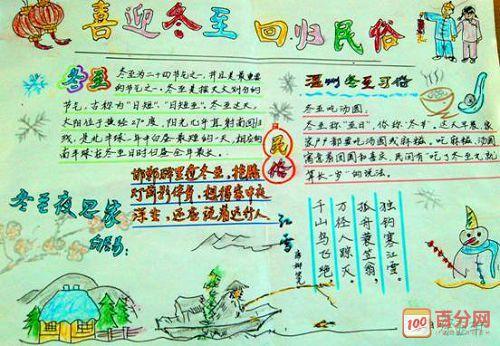 喜迎冬至 回归民俗
冬至
冬至为二十四节气之一，并且是最重要
的节气之一。冬至是按天文划分的
节气，古称为"日短"、"日短至"。冬至这天，
太阳位于黄经270度，阳光几乎直射南回归
线，是北半球一年中白昼最短的一天，相应的
南半球在冬至日时白昼全年最长。
民俗
温州冬至习俗
冬至吃汤圆
冬至称"亚日"，俗称"冬节"，这天早晨，家
家户都要吃汤圆或麻糍。吃麻糍、汤圆
寓意着团圆和喜庆，民间有"吃了冬至丸就
算长一岁"的说法。
冬至夜思家
白居易：
邯郸驿里逢冬至，抱膝
灯前影伴身。想得家中夜
深坐，还应说着远行人。
江雪
唐柳宗元
千山鸟飞绝，
万径人踪灭。
孤舟蓑笠翁，
独钓寒江雪。
100
百分网